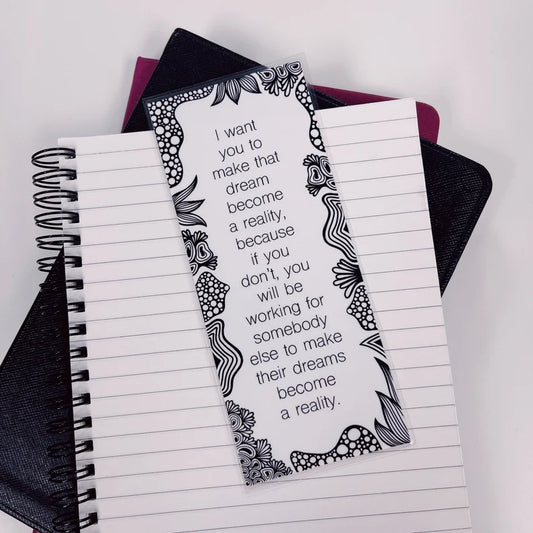 I want
you to
make that
dream
become
a reality,
because
if you
don't, you
will be
working for
somebody
else to make
their dreams
become
a reality.